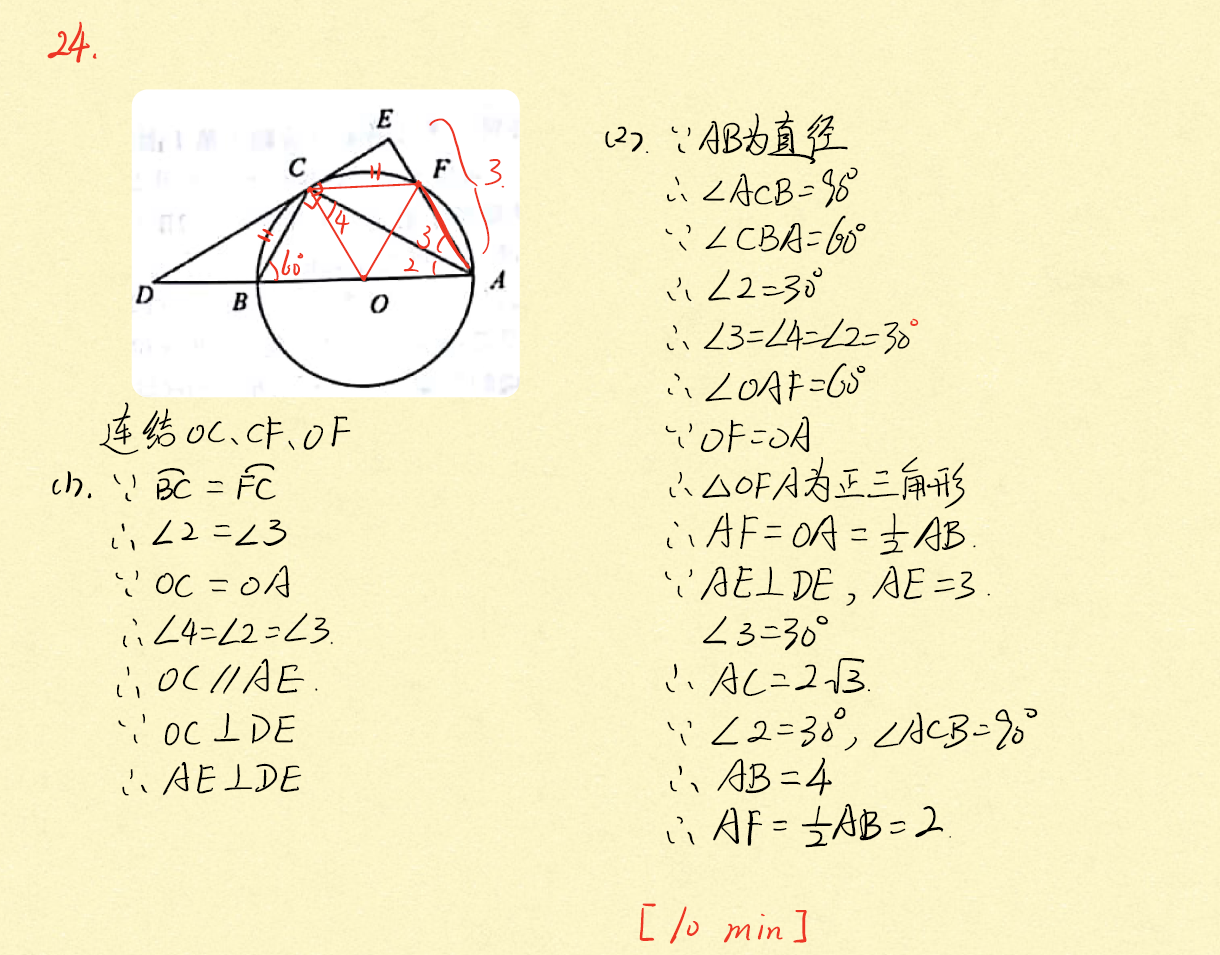 24.
E
C
F
3.
4
3
60°
2
D
B
O
A
连结OC、CF、OF
(1). ∵ B͡C = F͡C
∴ ∠2 = ∠3
∵ OC = OA
∴ ∠4=∠2=∠3.
∴ OC // AE.
∵ OC ⊥ DE
∴ AE⊥DE
(2). ∵ AB为直径
∴ ∠ACB=90°
∵ ∠CBA=60°
∴ ∠2=30°
∴ ∠3=∠4=∠2=30°
∴ ∠OAF=60°
∵ OF=OA
∴ △OFA为正三角形
∴ AF=OA=½AB.
∵ AE⊥DE, AE=3.
∠3=30°
∴ AC=2√3.
∵ ∠2=30°, ∠ACB=90°
∴ AB=4
∴ AF=½AB=2.
[10 min]